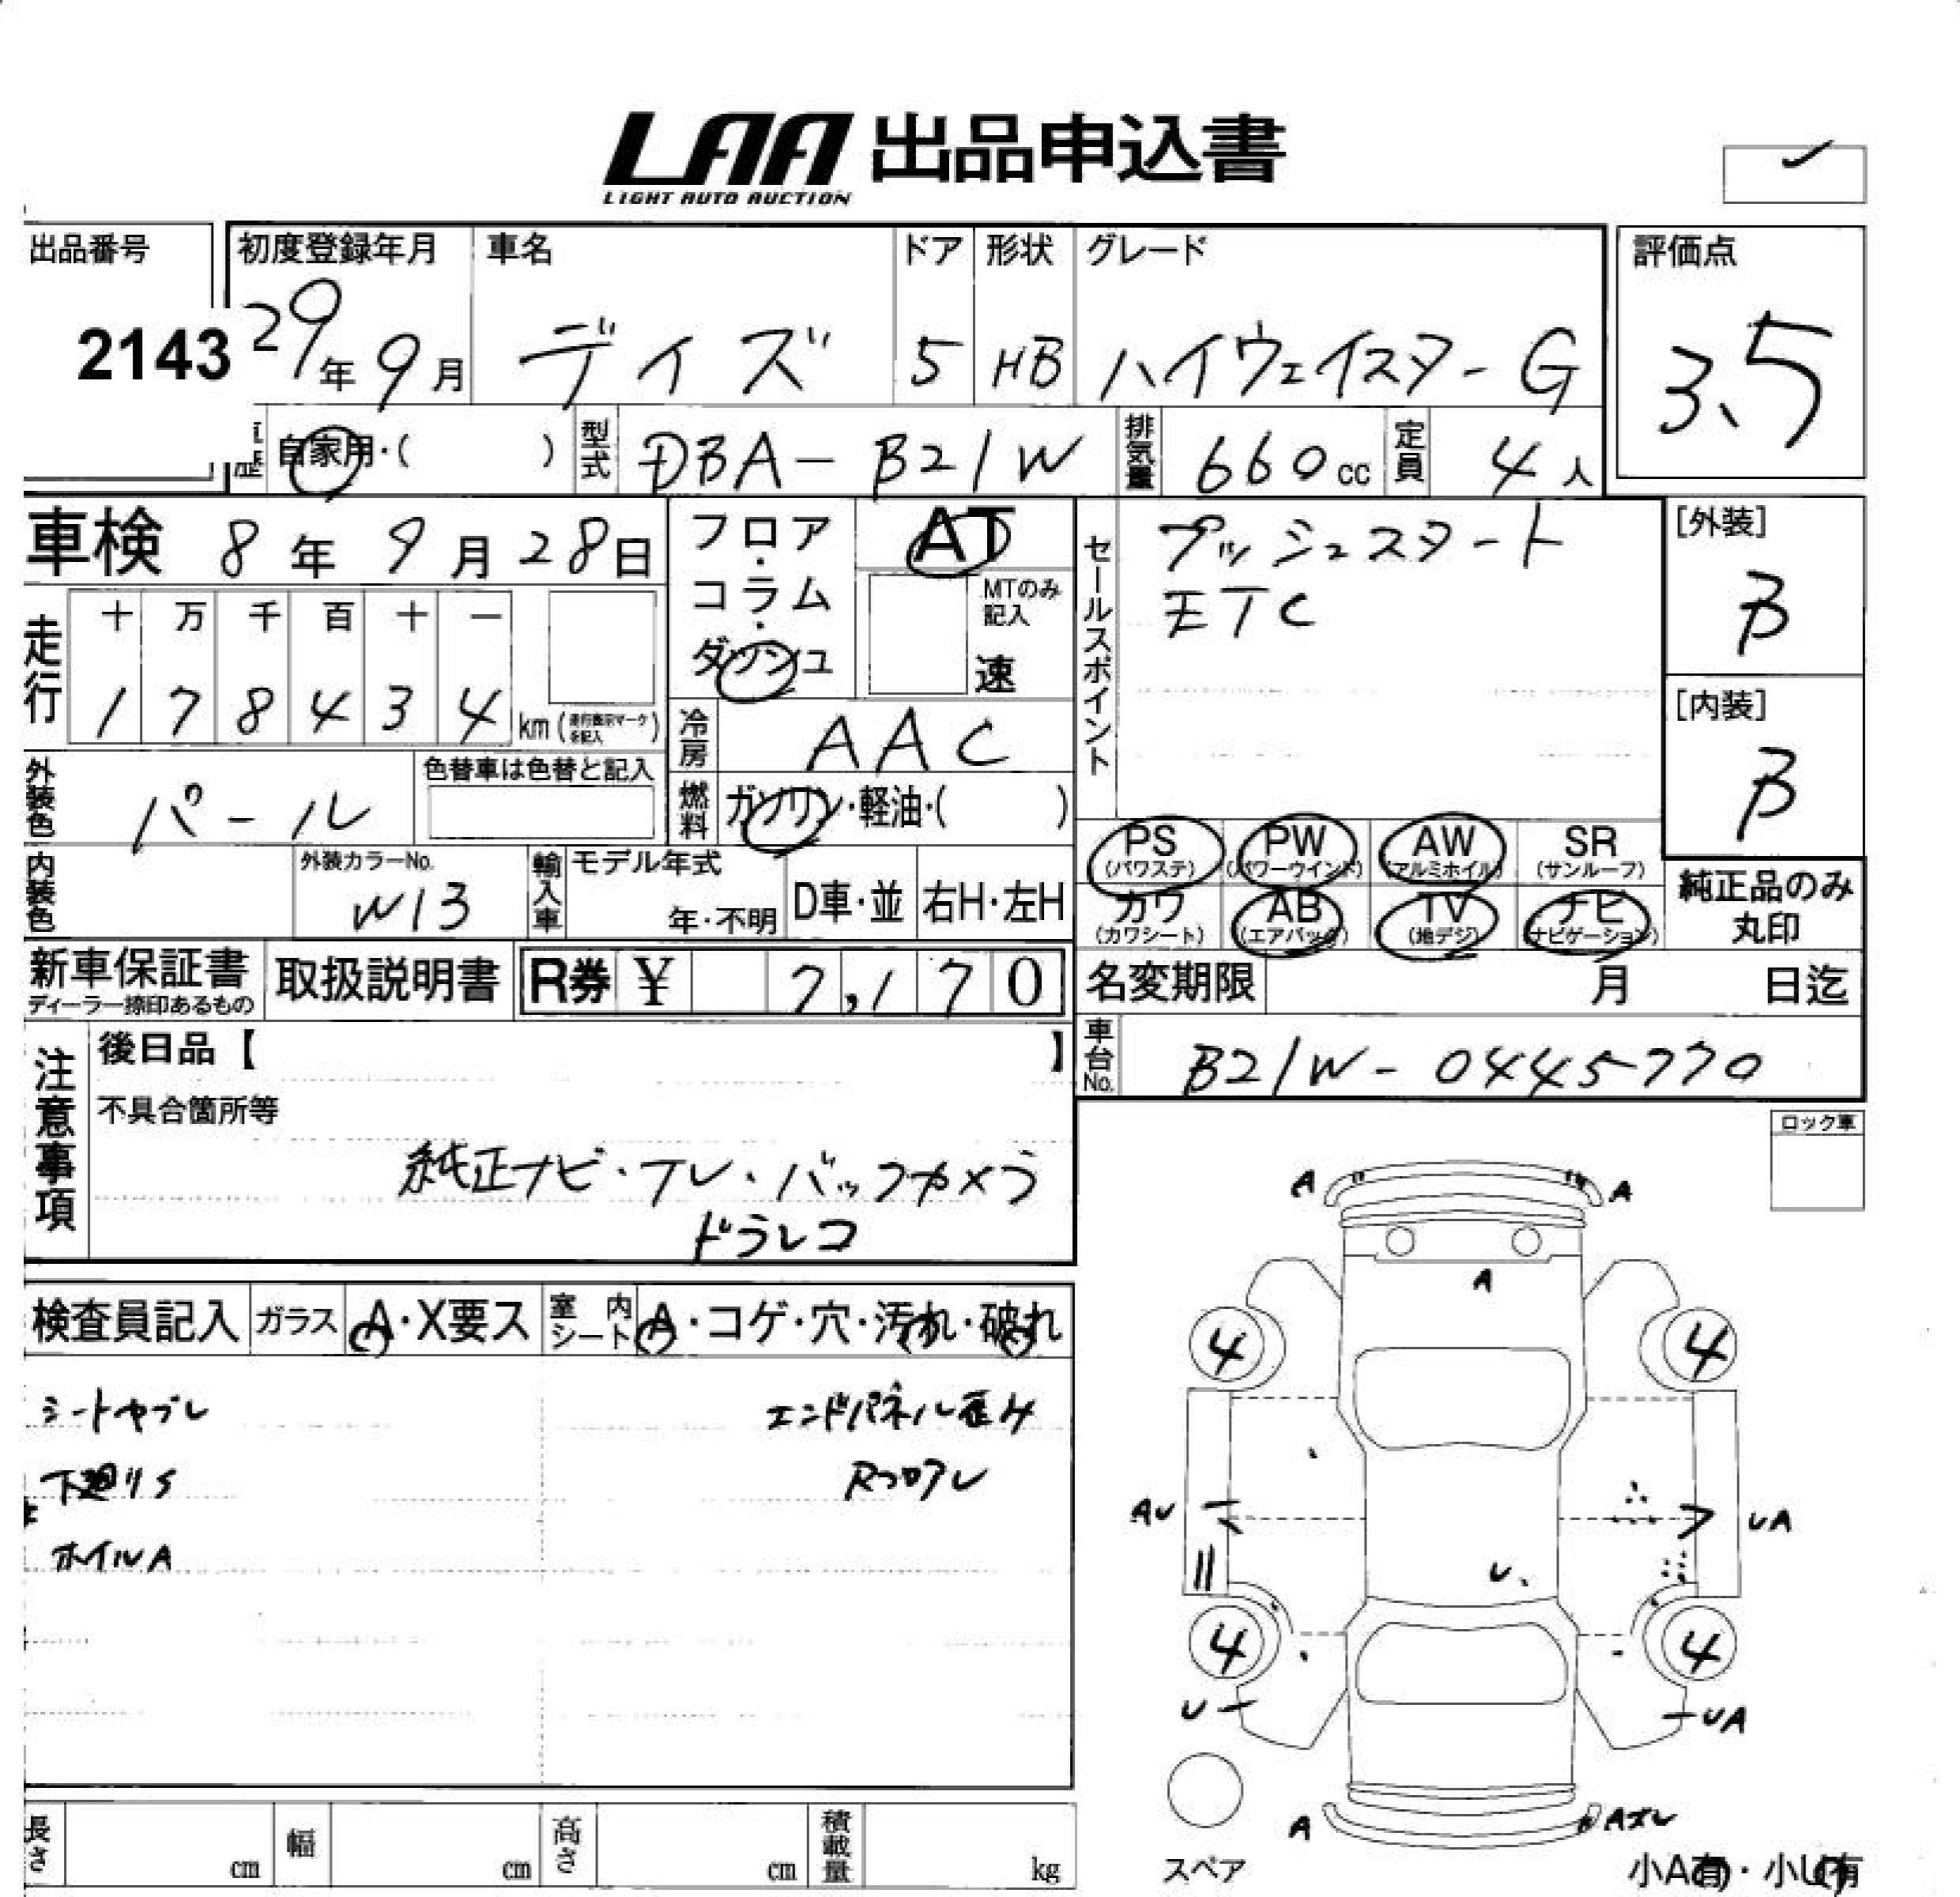 LAA 出品申込書
LIGHT AUTO AUCTION
出品番号 初度登録年月 車名 ドア 形状 グレード 評価点
2143 29年 9月 デイズ 5 HB ハイウェイスター G 3.5
歴 自家用・( ) 型式 DBA-B21W 排気量 660cc 定員 4人
車検 8年 9月 28日 フロア・コラム・ダッシュ AT セールスポイント プッシュスタート [外装]
MTのみ記入 速 ETC B
走行 十 万 千 百 十 一
1 7 8 4 3 4 km (走行表示マークを記入) [内装]
冷房 AAC B
外装色 パール 色替車は色替と記入 燃料 ガソリン・軽油・( )
PS (パワステ) PW (パワーウインド) AW (アルミホイル) SR (サンルーフ)
内装色 外装カラーNo. W13 輸入車 モデル年式 年・不明 D車・並 右H・左H
カワ (カワシート) AB (エアバッグ) TV (地デジ) ナビ (ナビゲーション) 純正品のみ丸印
新車保証書 ディーラー捺印あるもの 取扱説明書 R券 ¥ 7,170 名変期限 月 日迄
注意事項 後日品【 】 車台No. B21W-0445770
不具合箇所等 ロック車
純正ナビ・テレ・バックカメラ
ドラレコ
検査員記入 ガラス A・X要ス 室内シート A・コゲ・穴・汚れ・破れ
シートヤブレ エンドパネル歪み
下廻りS Rフロアレ
ホイルA
A A
A
4 4
AU UA
U
4 4
U UA
A Aズレ
スペア
長さ cm 幅 cm 高さ cm 積載量 kg
小A有・小U有